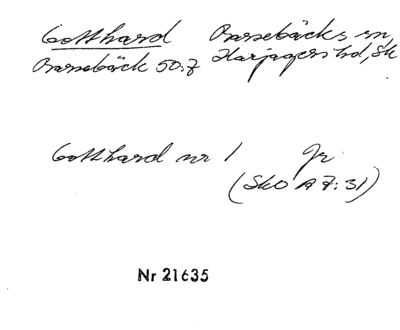 Gotthard Barsebäcks sn,
Barsebäck 50:7 Harjagers hd, Sk
Gotthard nr 1 Jr
(SkO A 7:31)
Nr 21635